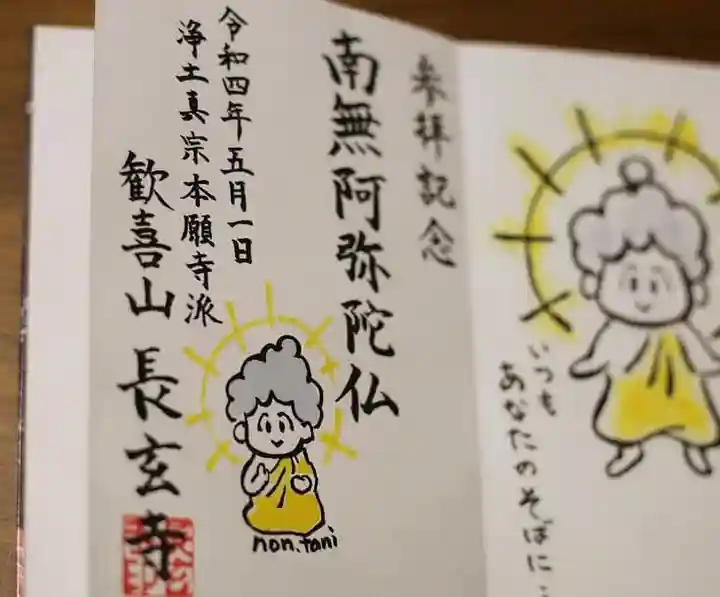 参拝記念
南無阿弥陀仏
令和四年五月一日
浄土真宗本願寺派
歓喜山 長玄寺
non.tani
いつも
あなたのそばに